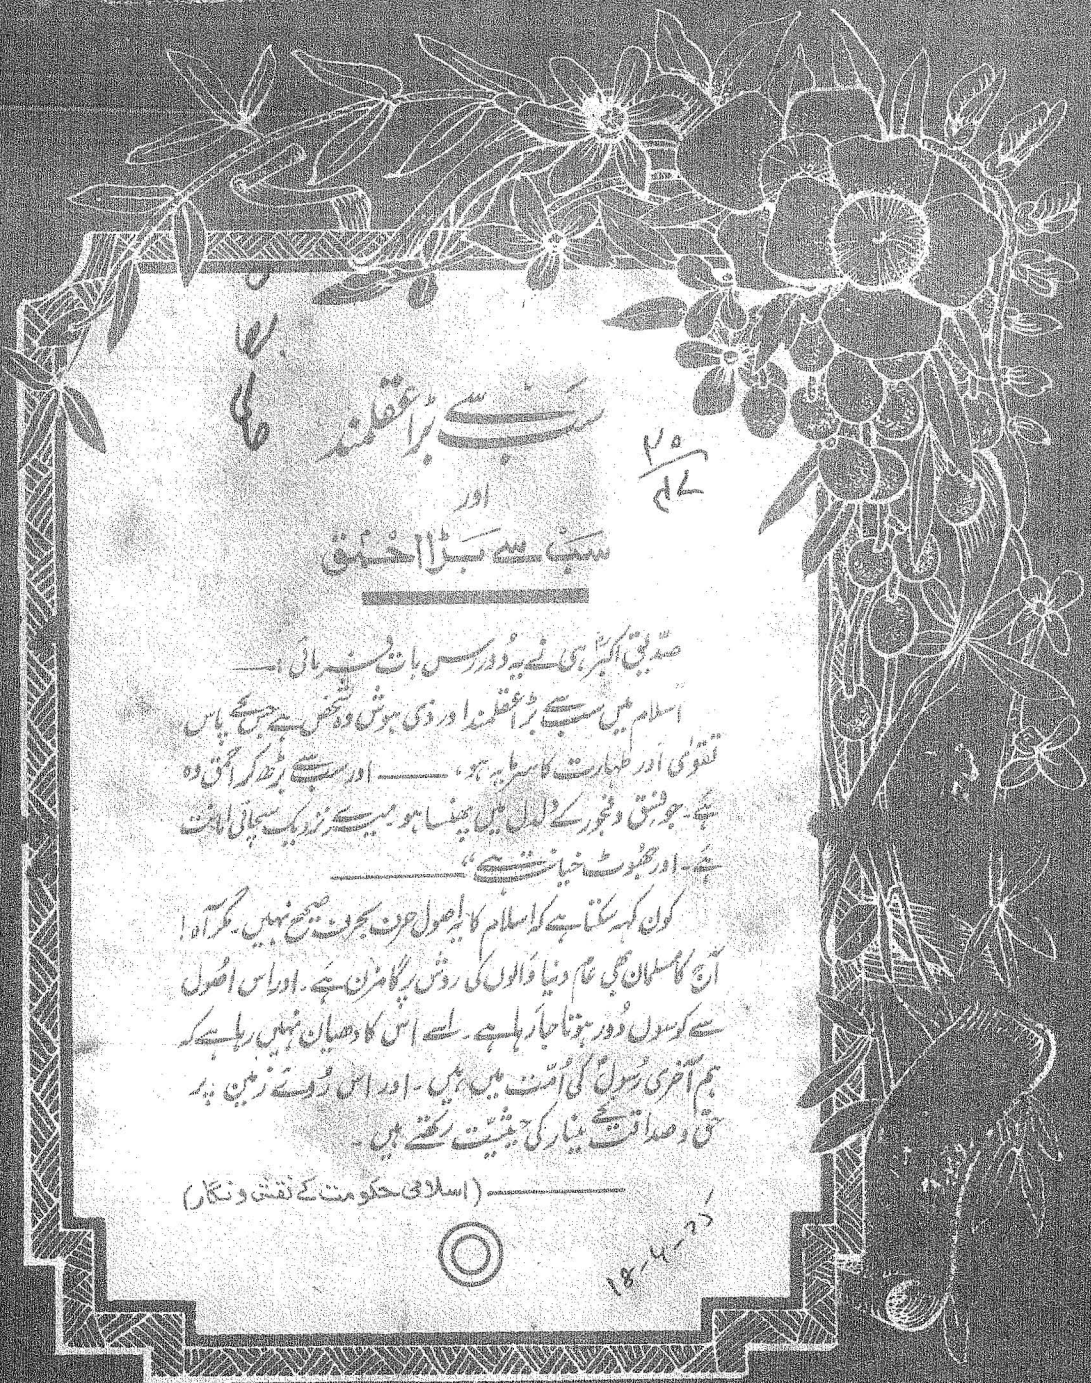 سب سے بڑا عقلمند
اور
سَبْ سے بَڑا احْمَق
صدیق اکبرؓ ہی نے یہ دُور رس بات فرمائی :—
اسلام میں سب سے بڑا عقلمند اور ذی ہوش وہ شخص ہے جس کے پاس
تقویٰ اور طہارت کا سرمایہ ہو، —— اور سب سے بڑھ کر احمق وہ
ہے۔ جو فسق و فجور کے دلدل میں پھنسا ہو۔ میرے نزدیک سچائی امانت
ہے۔ اور جھُوٹ خیانت ہے“ ———
کون کہہ سکتا ہے کہ اسلام کا یہ اصول حرف بحرف صحیح نہیں۔ مگر آہ!
آج کا مسلمان بھی عام دنیا والوں کی روش پر گامزن ہے۔ اور اس اصُول
سے کوسوں دُور ہوتا جا رہا ہے۔ اسے اس کا دھیان نہیں رہا ہے کہ
ہم آخری رسُولؐ کی اُمّت میں ہیں۔ اور اس رُوئے زمین پر
حق و صداقت کے مینار کی حیثیّت رکھتے ہیں۔
——— (اسلامی حکومت کے نقش و نگار)